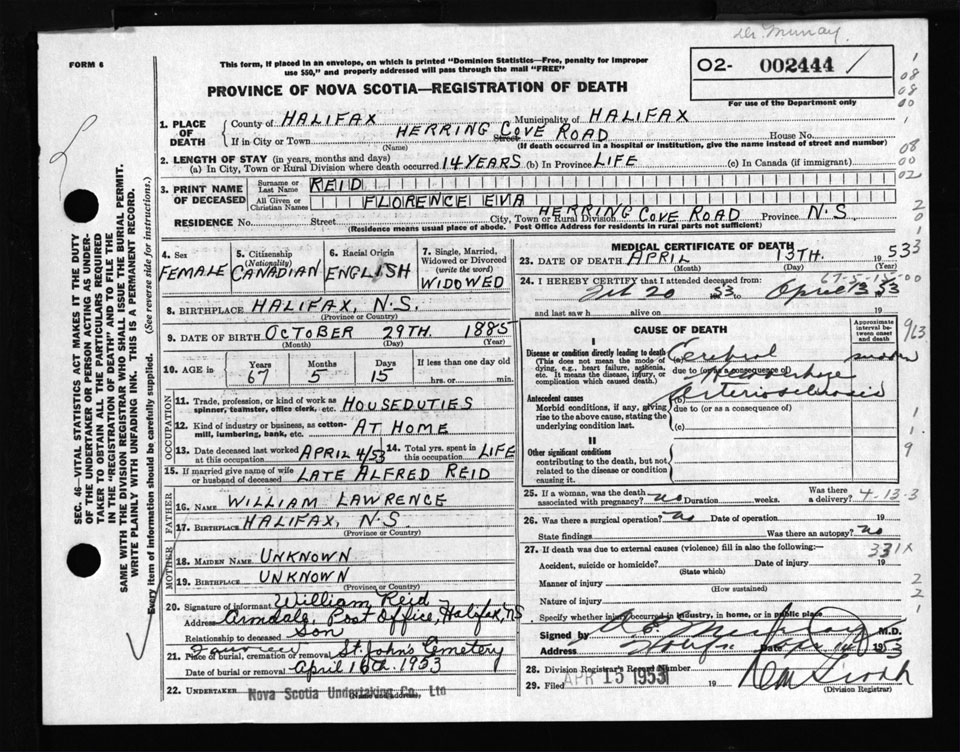 Dr. Murray
FORM 6
This form, if placed in an envelope, on which is printed "Dominion Statistics—Free, penalty for improper
use $50," and properly addressed will pass through the mail "FREE"
02- 002444 /
For use of the Department only
PROVINCE OF NOVA SCOTIA—REGISTRATION OF DEATH
1. PLACE OF DEATH { County of HALIFAX Municipality of HALIFAX
If in City or Town HERRING COVE ROAD Street House No.
(Name) (If death occurred in a hospital or institution, give the name instead of street and number)
2. LENGTH OF STAY (in years, months and days)
(a) In City, Town or Rural Division where death occurred 14 YEARS (b) In Province LIFE (c) In Canada (if immigrant)
3. PRINT NAME OF DECEASED { Surname or Last Name REID
All Given or Christian Names FLORENCE EVA
RESIDENCE No. Street City, Town or Rural Division HERRING COVE ROAD Province N.S.
(Residence means usual place of abode. Post Office Address for residents in rural parts not sufficient)
4. Sex FEMALE
5. Citizenship (Nationality) CANADIAN
6. Racial Origin ENGLISH
7. Single, Married, Widowed or Divorced (write the word) WIDOWED
8. BIRTHPLACE HALIFAX, N.S.
(Province or Country)
9. DATE OF BIRTH OCTOBER 29TH. 1885
(Month) (Day) (Year)
10. AGE IN Years 67 Months 5 Days 15 If less than one day old
hrs. or min.
OCCUPATION
11. Trade, profession, or kind of work as spinner, teamster, office clerk, etc. HOUSEDUTIES
12. Kind of industry or business, as cotton-mill, lumbering, bank, etc. AT HOME
13. Date deceased last worked at this occupation APRIL 4/53 14. Total yrs. spent in this occupation LIFE
15. If married give name of wife or husband of deceased LATE ALFRED REID
FATHER
16. NAME WILLIAM LAWRENCE
17. BIRTHPLACE HALIFAX, N.S.
(Province or Country)
MOTHER
18. MAIDEN NAME UNKNOWN
19. BIRTHPLACE UNKNOWN
(Province or Country)
20. Signature of informant William Reid
Address Armdale, Post Office, Halifax, N.S.
Relationship to deceased Son
21. Place of burial, cremation or removal St. John's Cemetery
Date of burial or removal April 16th. 1953
22. UNDERTAKER Nova Scotia Undertaking Co., Ltd
MEDICAL CERTIFICATE OF DEATH
23. DATE OF DEATH APRIL 13TH. 1953
(Month) (Day) (Year)
67-5-15-00
24. I HEREBY CERTIFY that I attended deceased from:
Feb 20 1953 to April 13 1953
and last saw h alive on 19
CAUSE OF DEATH
Approximate interval between onset and death
I
Disease or condition directly leading to death (a) Cerebral
(This does not mean the mode of dying, e.g., heart failure, asthenia, etc. It means the disease, injury, or complication which caused death.)
due to (or as a consequence of) Hemorrhage
Antecedent causes (b) Arteriosclerosis
Morbid conditions, if any, giving rise to the above cause, stating the underlying condition last.
due to (or as a consequence of)
(c)
II
Other significant conditions
contributing to the death, but not related to the disease or condition causing it.
25. If a woman, was the death associated with pregnancy? no Duration weeks. Was there a delivery? 4-13-3
26. Was there a surgical operation? no Date of operation 19
State findings Was there an autopsy? no
27. If death was due to external causes (violence) fill in also the following:— 331X
Accident, suicide or homicide? Date of injury 19
(State which)
Manner of injury
(How sustained)
Nature of injury
Specify whether injury occurred in industry, in home, or in public place
Signed by M.D.
Address Date Apr 14 1953
28. Division Registrar's Record Number
29. Filed APR 15 1953 19
(Division Registrar)
SEC. 46—VITAL STATISTICS ACT MAKES IT THE DUTY
OF THE UNDERTAKER OR PERSON ACTING AS UNDER-
TAKER TO OBTAIN ALL THE PARTICULARS REQUIRED
IN THE "REGISTRATION OF DEATH" AND TO FILE THE
SAME WITH THE DIVISION REGISTRAR WHO SHALL ISSUE THE BURIAL PERMIT.
WRITE PLAINLY WITH UNFADING INK. THIS IS A PERMANENT RECORD.
Every item of information should be carefully supplied. (See reverse side for instructions.)